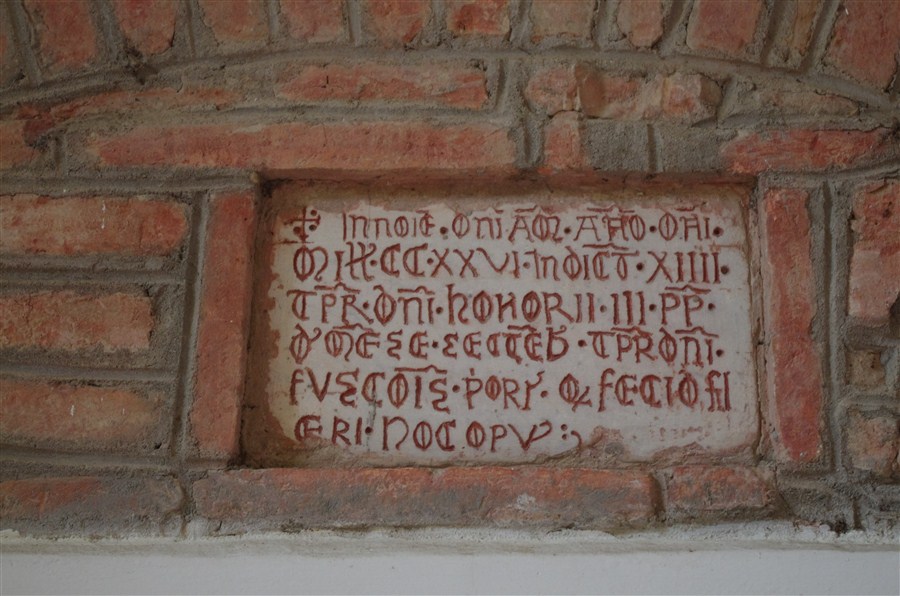 ✠ IN NOIE · DNI AM · ANNO · DNI ·
MILL · CC · XXVI · INDICT · XIIII ·
TPR · DNI · HONORII · III · PP ·
D' MESE SE · SECTEB · TPR DNI ·
FUSCOIS · PORI · Q FECIO FI
ERI · HOC OPU :